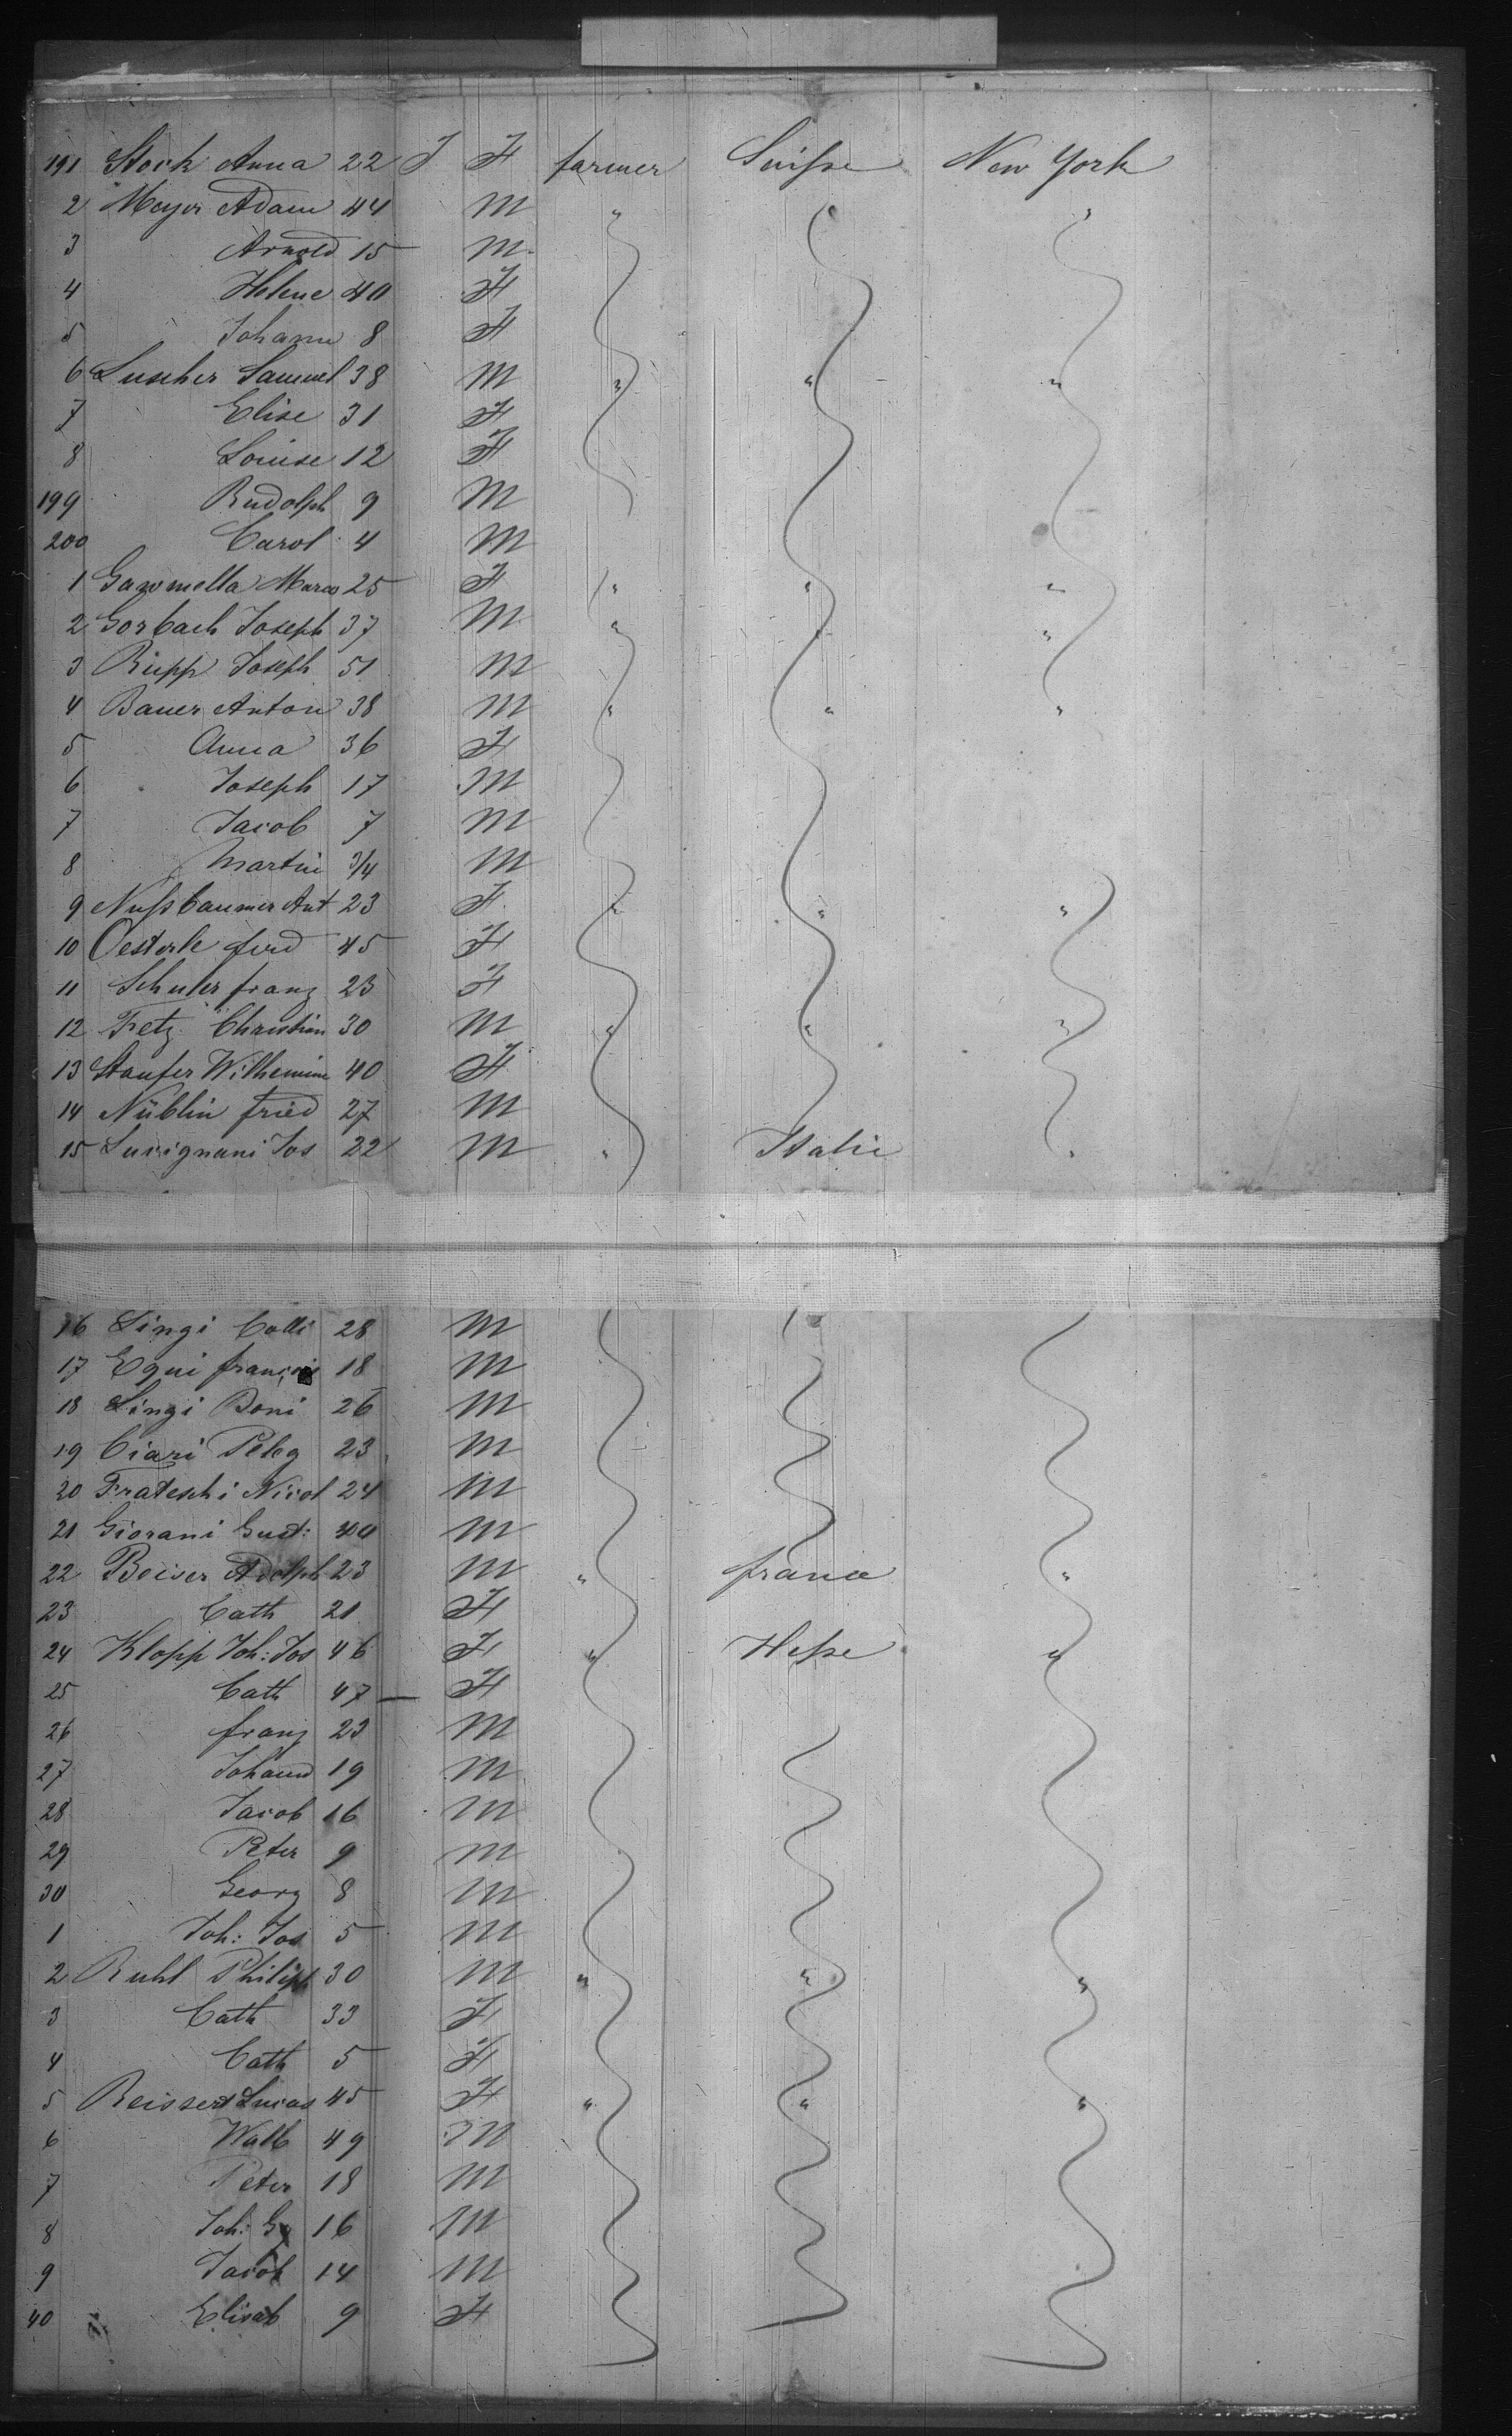 191 Stock Anna 22 J F farmer Suisse New York
2 Meyer Adam 44 M " " "
3 Arnold 15 M
4 Helene 40 F
5 Johann 8 F
6 Luscher Samuel 38 M " " "
7 Elise 31 F
8 Louise 12 F
199 Rudolph 9 M
200 Carol 4 M
1 Maria 25 F " " "
2 Gorbach Joseph 37 M " " "
3 Rupp Joseph 51 M
4 Bauer Anton 38 M " " "
5 Anna 36 F
6 Joseph 17 M
7 Jacob 7 M
8 Martin 3/4 M
9 Nußbaumer Ant 23 F " " "
10 Oesterle ferd 45 F
11 Schuler franz 23 F
12 Fetz Christian 30 M " " "
13 Staufer Wilhemine 40 F
14 Nüblin fried 27 M
15 Lucignani Jos 22 M " Italie "
16 Lingi Colli 28 M
17 Equi françois 18 M
18 Lingi Doni 26 M
19 Ciari Peleg 23 M
20 Frateschi Nicol 24 M
21 Giorani Gust: 40 M
22 Adolph 23 M " france "
23 Cath 21 F
24 Klopp Joh: Jos 46 F " Hesse "
25 Cath 47 F
26 franz 23 M
27 Johann 19 M
28 Jacob 16 M
29 Peter 9 M
30 Georg 8 M
1 Joh: Jos 5 M
2 Ruhl Philipp 30 M " " "
3 Cath 33 F
4 Cath 5 F
5 Reissert Lucas 45 F " " "
6 Walb 49 M
7 Peter 18 M
8 Joh: Gg 16 M
9 Jacob 14 M
40 Elisab 9 F